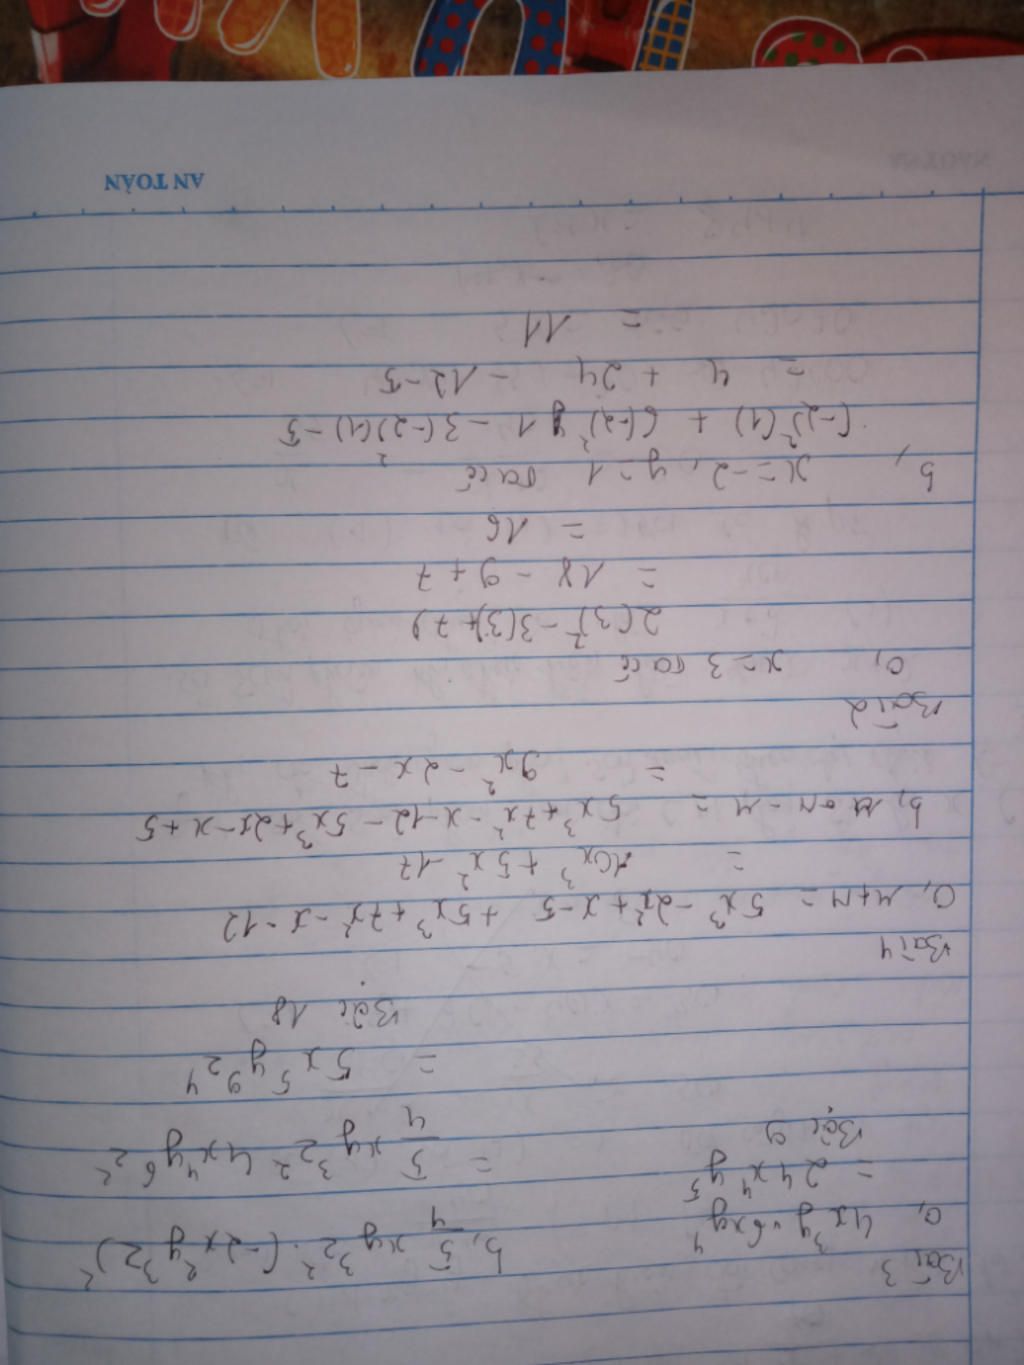 Bài 3
a, 4x³y · 6xy⁴
= 24x⁴y⁵
Bậc 9
b, 5/4 xy³z² · (-2x²y³z)²
= 5/4 xy³z² 4x⁴y⁶z²
= 5x⁵y⁹z⁴
Bậc 18
Bài 4
a, M+N = 5x³ - 2x² + x - 5 + 5x³ + 7x² - x - 12
= 10x³ + 5x² - 17
b, N - M = 5x³ + 7x² - x - 12 - 5x³ + 2x - x + 5
= 9x² - 2x - 7
Bài 2
a, x = 3 ta có
2(3)² - 3(3) + 7)
= 18 - 9 + 7
= 16
b, x = -2, y = 1 ta có
(-2)²(1) + 6(-2)² 1 - 3(-2)(1)² - 5
= 4 + 24 - 12 - 5
= 11
AN TOÀN